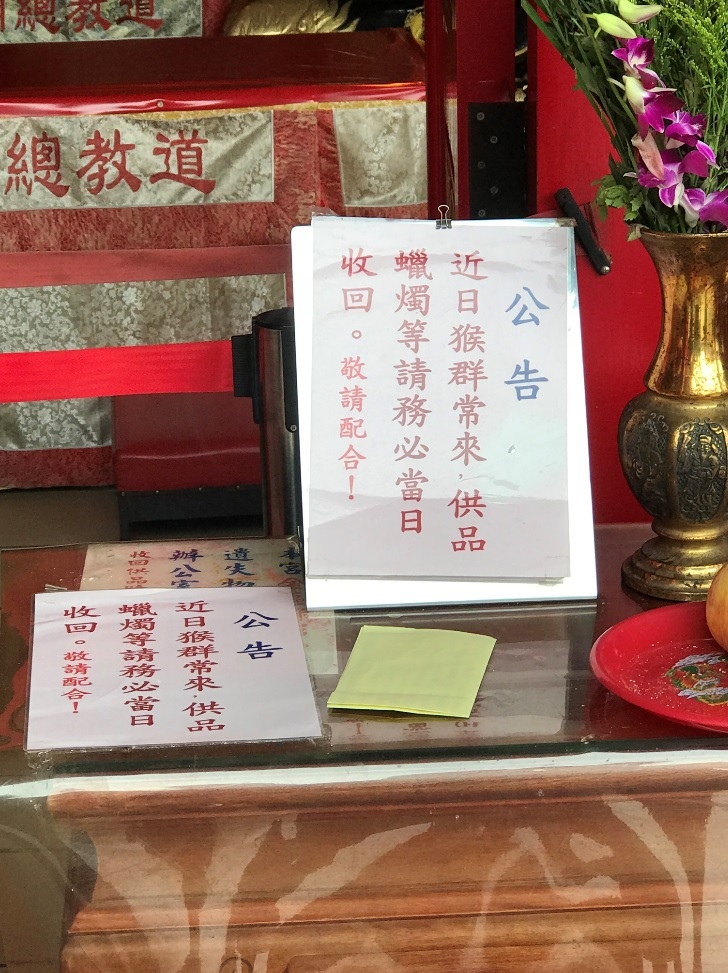 總教道
總教道
公告
近日猴群常來,供品
蠟燭等請務必當日
收回。敬請配合!
遺失物
辦公室
收回供品
公告
近日猴群常來 供品
蠟燭等請務必當日
收回。敬請配合!